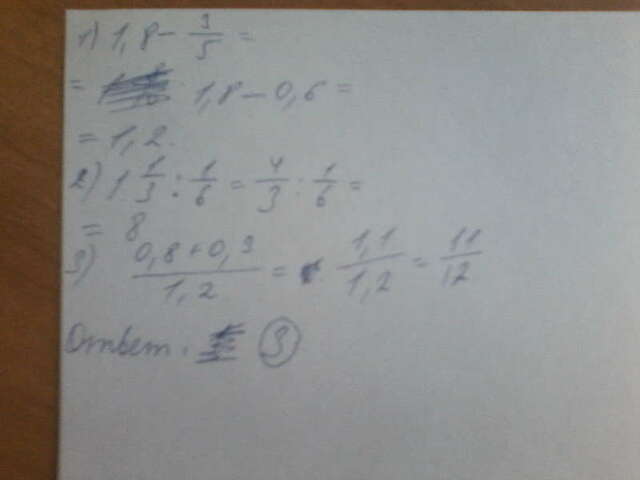 1) 1,8 - 3/5 =
= 1,8 - 0,6 =
= 1,2.
2) 1 1/3 : 1/6 = 4/3 : 1/6 =
= 8
3) 0,8+0,3/1,2 = 1,1/1,2 = 11/12
Ответ. 3